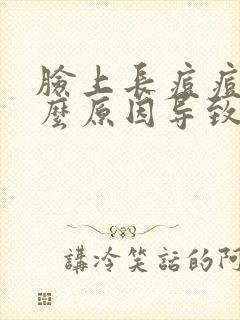 臉上長痘痘
麼原因导致
講冷笑話的阿